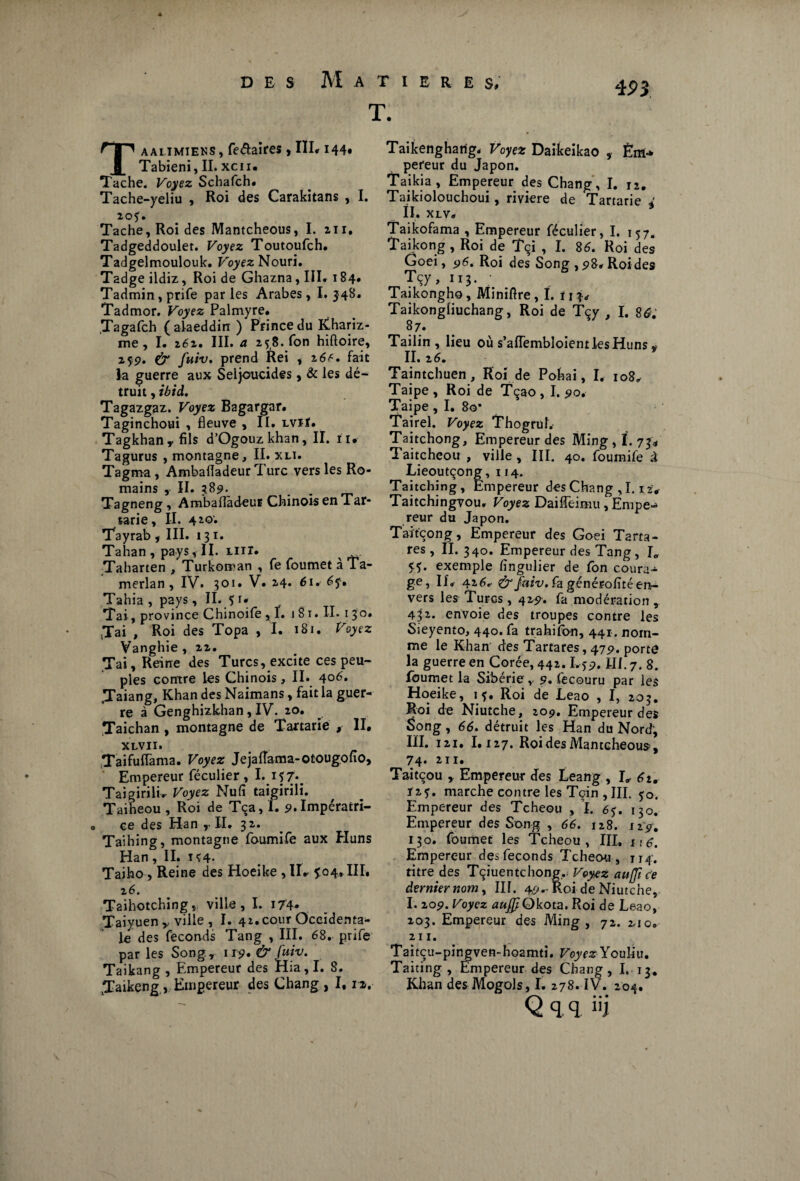 DES MATIERES, 493
T.
TAALIMIENS, ſectaires, III. 144.
Tabieni, II. XCII.
Tache. Voyez Schaſch.
Tache-yeliu, Roi des Carakitans, I.
205.
Tache, Roi des Mantcheous, I. 211.
Tadgeddoulet. Voyez Toutouſch.
Tadgelmoulouk. Voyez Nouri.
Tadge ildiz, Roi de Ghazna, III. 184.
Tadmin, priſe par les Arabes, I. 348.
Tadmor. Voyez Palmyre.
Tagaſch (alaeddin) Prince du Khariz-
me, I. 262. III. a 258. ſon hiſtoire,
259. & ſuiv. prend Rei, 266. fait
la guerre aux Seljoucides, & les dé-
truit, ibid.
Tagazgaz. Voyez Bagargar.
Taginchoui, fleuve, II. LVII.
Tagkhan, fils d'Ogouz khan, II. 11.
Tagurus, montagne, II. XLI.
Tagma, Ambaſſadeur Turc vers les Ro-
mains, II. 389.
Tagneng, Ambaſſadeur Chinois en Tar-
tarie, II. 420.
Tayrab, III. 131.
Tahan, pays, II. LIII.
Taharten, Turkoman, ſe ſoumet à Ta-
merlan, IV. 301. V. 24. 61. 65.
Tahia, pays, II. 51.
Tai, province Chinoiſe, I. 181. II. 130.
Tai, Roi des Topa, I. 181. Voyez
Vanghie, 22.
Tai, Reine des Turcs, excite ces peu-
ples contre les Chinois, II. 406.
Taiang, Khan des Naimans, fait la guer-
re à Genghizkhan, IV. 20.
Taichan, montagne de Tartarie, II.
XLVII.
Taifuſſama. Voyez Jejaſſama-otougoſio,
Empereur ſéculier, I. 157.
Taigirili. Voyez Nuſi taigirili.
Taiheou, Roi de Tça, I. 9. Impératri-
ce des Han, II. 32.
Taihing, montagne ſoumiſe aux Huns
Han, II. 154.
Taiho, Reine des Hoeike, II. 504. III.
26.
Taihotching, ville, I. 174.
Taiyuen, ville, I. 42. cour Occidenta-
le des ſeconds Tang, III. 68. priſe
par les Song, 119. & ſuiv.
Taikang, Empereur des Hia, I. 8.
Taikeng, Empereur des Chang, I. 12.
Taikenghang. Voyez Daikeikao, Em-
pereur du Japon.
Taikia, Empereur des Chang, I. 12.
Taikiolouchoui, riviere de Tartarie,
II. XLV.
Taikoſama, Empereur ſéculier, I. 157.
Taikong, Roi de Tçi, I. 86. Roi des
Goei, 96. Roi des Song, 98. Roi des
Tçy, 113.
Taikongho, Miniſtre, I. 113.
Taikongliuchang, Roi de Tçy, I. 86.
87.
Tailin, lieu où s'aſſembloient les Huns,
II. 26.
Taintchuen, Roi de Pohai, I. 108.
Taipe, Roi de Tçao, I. 90.
Taipe, I. 80.
Tairel. Voyez Thogrul.
Taitchong, Empereur des Ming, I. 73.
Taitcheou, ville, III. 40. ſoumiſe à
Lieoutçong, 114.
Taitching, Empereur des Chang, I. 12.
Taitchingvou. Voyez Daiſſeimu, Empe-
reur du Japon.
Taitçong, Empereur des Goei Tarta-
res, II. 340. Empereur des Tang, I.
55. exemple ſingulier de ſon coura-
ge, II. 426. & ſuiv. ſa généroſité en-
vers les Turcs, 429. ſa modération,
432. envoie des troupes contre les
Sieyento, 440. ſa trahiſon, 441. nom-
me le Khan des Tartares, 479. porte
la guerre en Corée, 442. I. 59. III. 7. 8.
ſoumet la Sibérie, 9. ſecouru par les
Hoeike, 15. Roi de Leao, I, 203.
Roi de Niutche, 209. Empereur des
Song, 66. détruit les Han du Nord,
III. 121. I. 127. Roi des Mantcheous,
74. 211.
Taitçou, Empereur des Leang, I. 62.
125. marche contre les Tçin, III. 50.
Empereur des Tcheou, I. 65. 130.
Empereur des Song, 66. 128. 129.
130. ſoumet les Tcheou, III. 116.
Empereur des ſeconds Tcheou, 114.
titre des Tçiuentchong. Voyez auſſi ce
dernier nom, III. 49. Roi de Niutche,
I. 209. Voyez auſſi Okota. Roi de Leao,
203. Empereur des Ming, 72. 210.
211.
Taitçu-pingven-hoamti. Voyez Youliu.
Taiting, Empereur des Chang, I. 13.
Khan des Mogols, I. 278. IV. 204.
Qqq iij